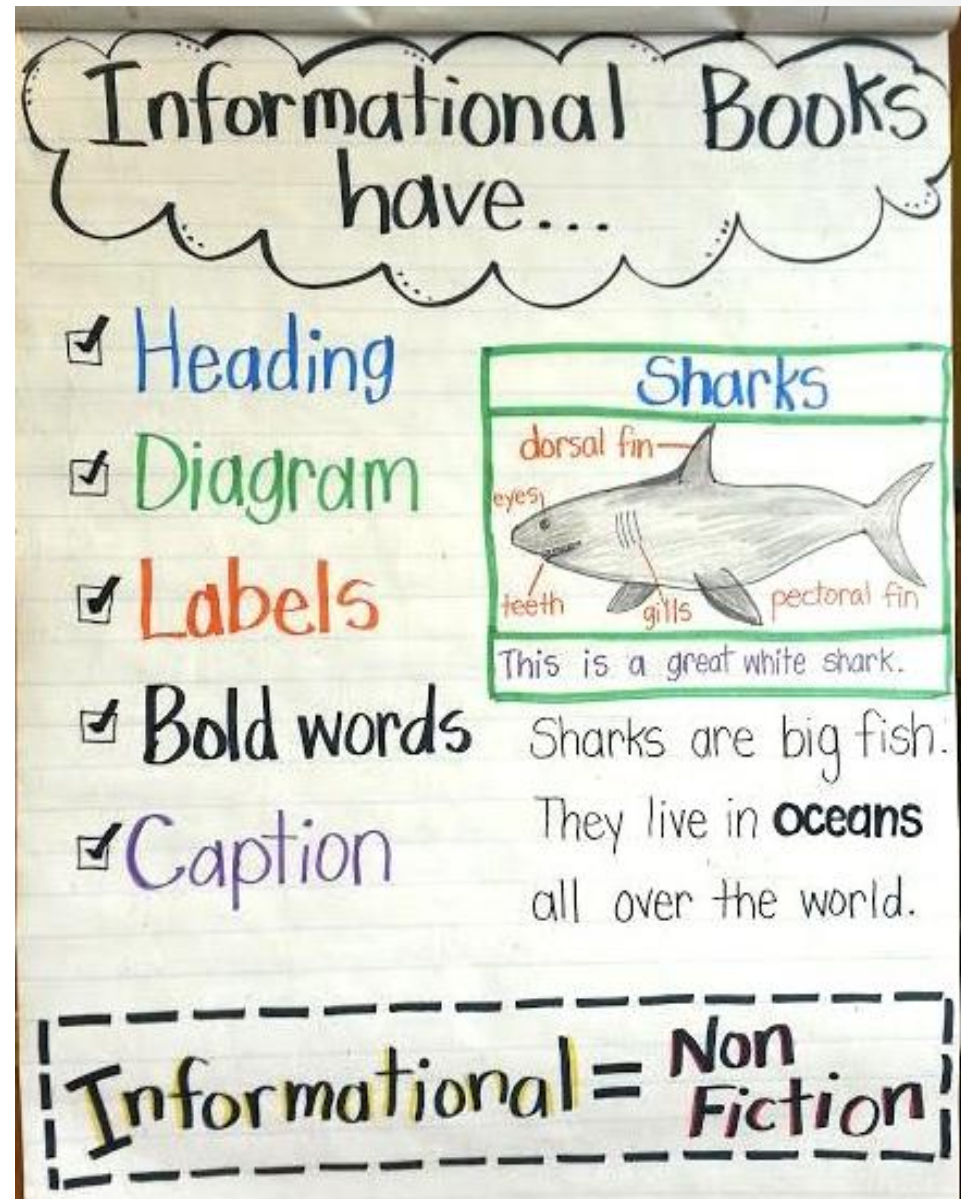 Informational Books
have...
Heading
Diagram
Labels
Bold words
Caption
Sharks
dorsal fin
eyes
teeth
gills
pectoral fin
This is a great white shark.
Sharks are big fish.
They live in oceans
all over the world.
Informational = Non
Fiction